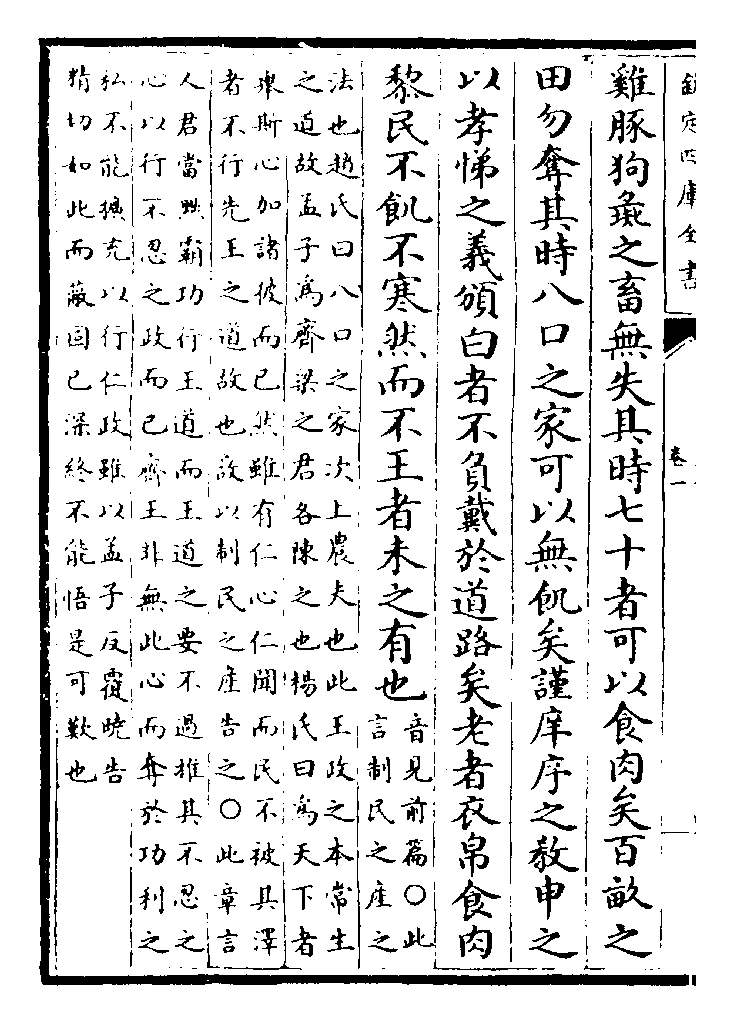 欽定四庫全書
卷一
雞豚狗彘之畜無失其時七十者可以食肉矣百畝之
田勿奪其時八口之家可以無飢矣謹庠序之教申之
以孝悌之義頒白者不負戴於道路矣老者衣帛食肉
黎民不飢不寒然而不王者未之有也
音見前篇○此
言制民之產之
法也趙氏曰八口之家次上農夫也此王政之本常生
之道故孟子為齊梁之君各陳之也楊氏曰為天下者
舉斯心加諸彼而已然雖有仁心仁聞而民不被其澤
者不行先王之道故也故以制民之產告之○此章言
人君當黜霸功行王道而王道之要不過推其不忍之
心以行不忍之政而已齊王非無此心而奪於功利之
私不能擴充以行仁政雖以孟子反覆曉告
精切如此而蔽固已深終不能悟是可歎也